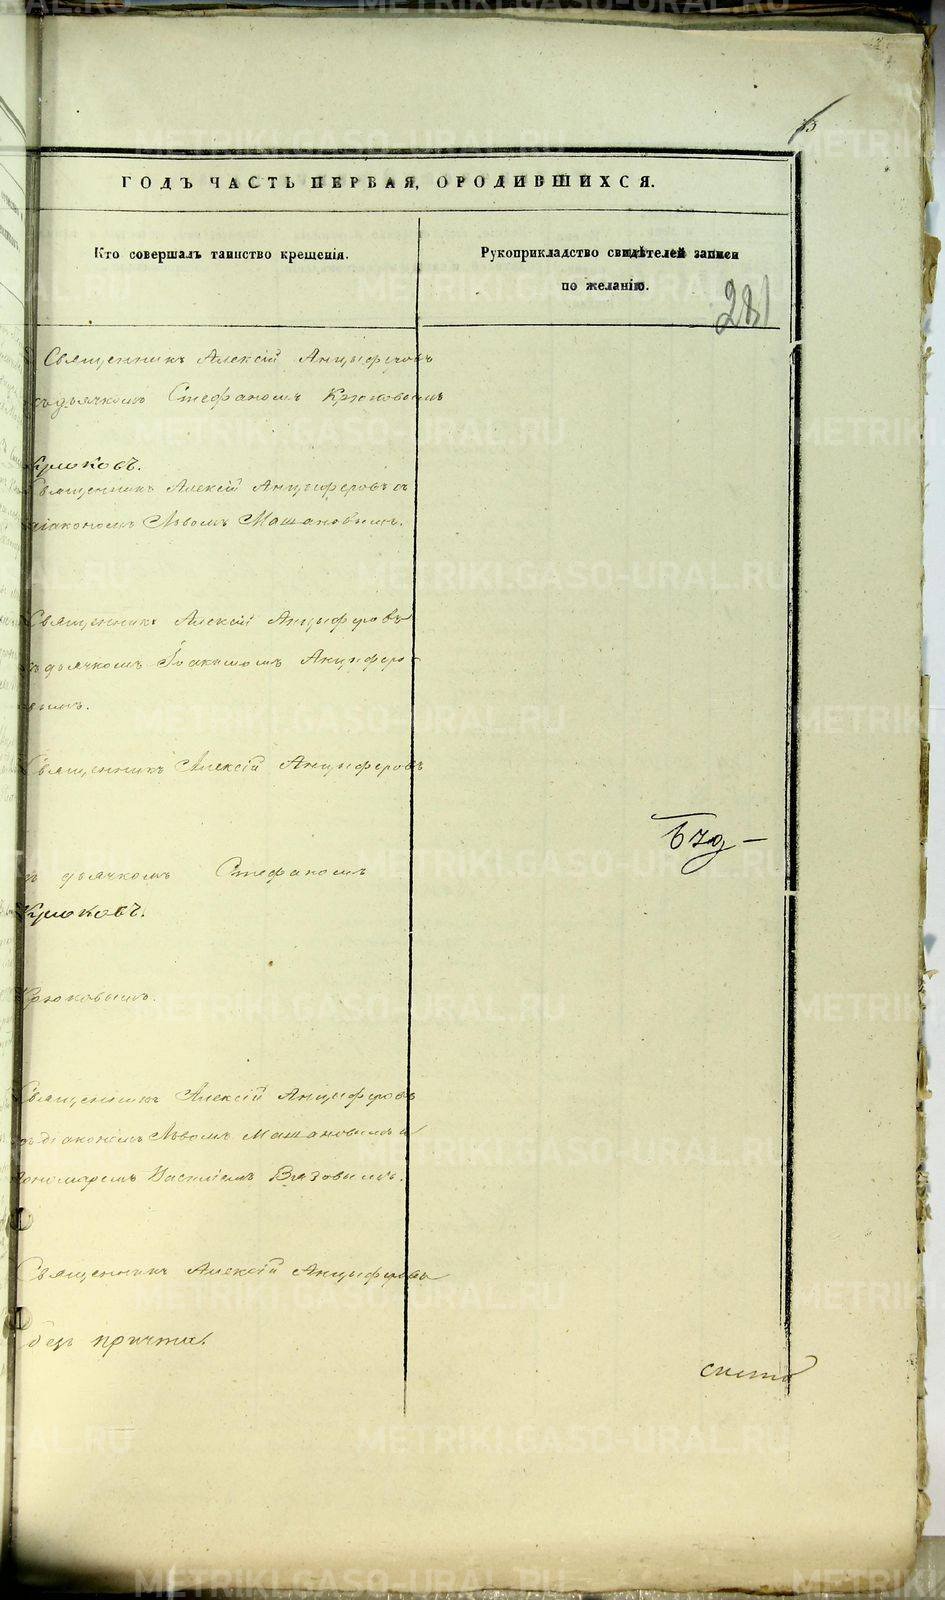 ГОДЪ ЧАСТЬ ПЕРВАЯ, ОРОДИВШИХСЯ.
Кто совершалъ таинство крещенія.
Рукоприкладство свидѣтелей записи
по желанію.
281
Священникъ Алексій Анцыферовъ
съ дьячкомъ Стефаномъ Крюковымъ
Крюковъ.
Священникъ Алексій Анцыферовъ съ
діакономъ Львомъ Машановымъ.
Священникъ Алексій Анцыферовъ
съ дьячкомъ Іоакимомъ Анцыферо-
вымъ.
Священникъ Алексій Анцыферовъ
съ дьячкомъ Стефаномъ
Крюковъ.
Крюковымъ.
Священникъ Алексій Анцыферовъ
съ діакономъ Львомъ Машановымъ и
пономаремъ Василіемъ Вязовымъ.
Священникъ Алексій Анцыферовъ
безъ причта.
METRIKI.GASO-URAL.RU